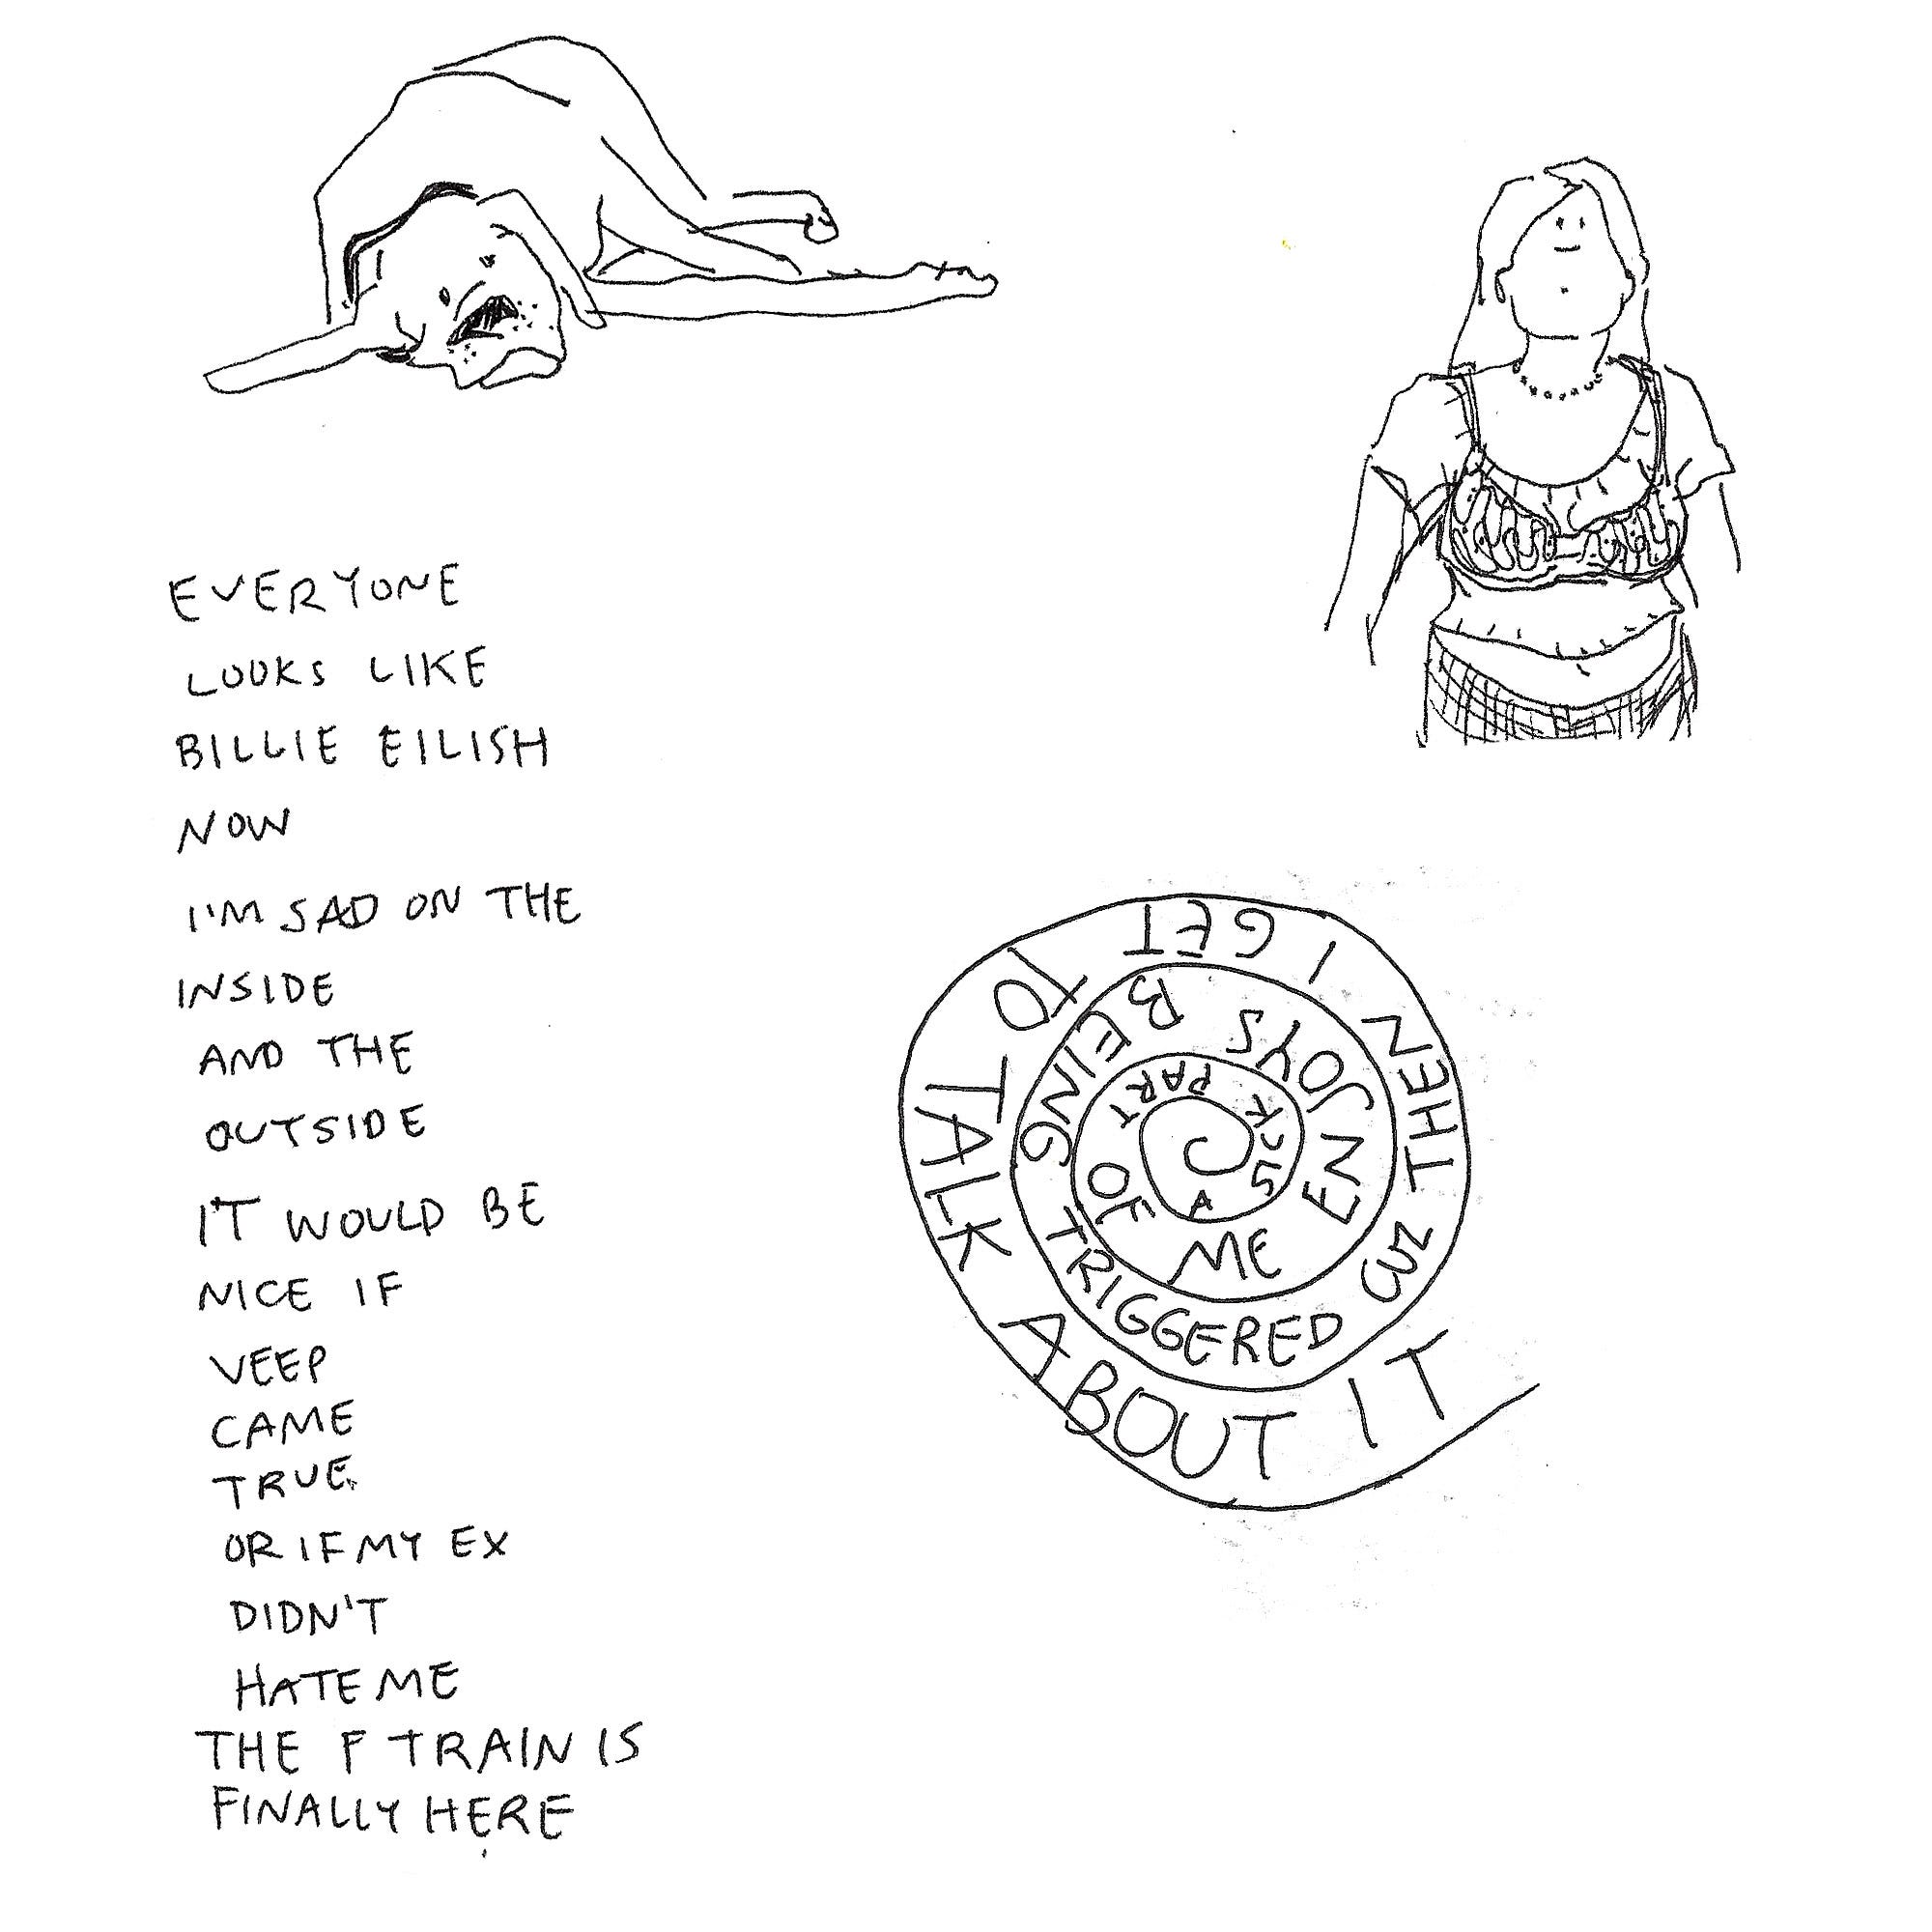 EVERYONE
LOOKS LIKE
BILLIE EILISH
NOW
I'M SAD ON THE
INSIDE
AND THE
OUTSIDE
IT WOULD BE
NICE IF
VEEP
CAME
TRUE
OR IF MY EX
DIDN'T
HATE ME
THE F TRAIN IS
FINALLY HERE
A SICK PART OF ME ENJOYS BEING TRIGGERED CUZ THEN I GET TO TALK ABOUT IT